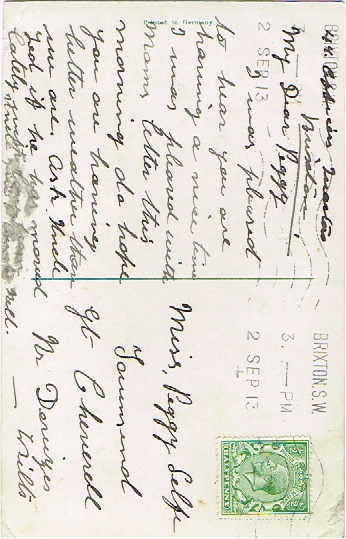 Printed in Germany
Brixton
My Dear Peggy
I was pleased
to hear you are
having a nice time
I was pleased with
Mams letter this
morning do hope
you are having
better weather than
we are. Ask Uncle
Ned if he has moved
Miss, Peggy Selfe
Townsend
Gt Cheverell
Nr Devizes
Wilts
BRIXTON
2 SEP 13
BRIXTON. S.W.
3. — PM
2 SEP 13
HALFPENNY